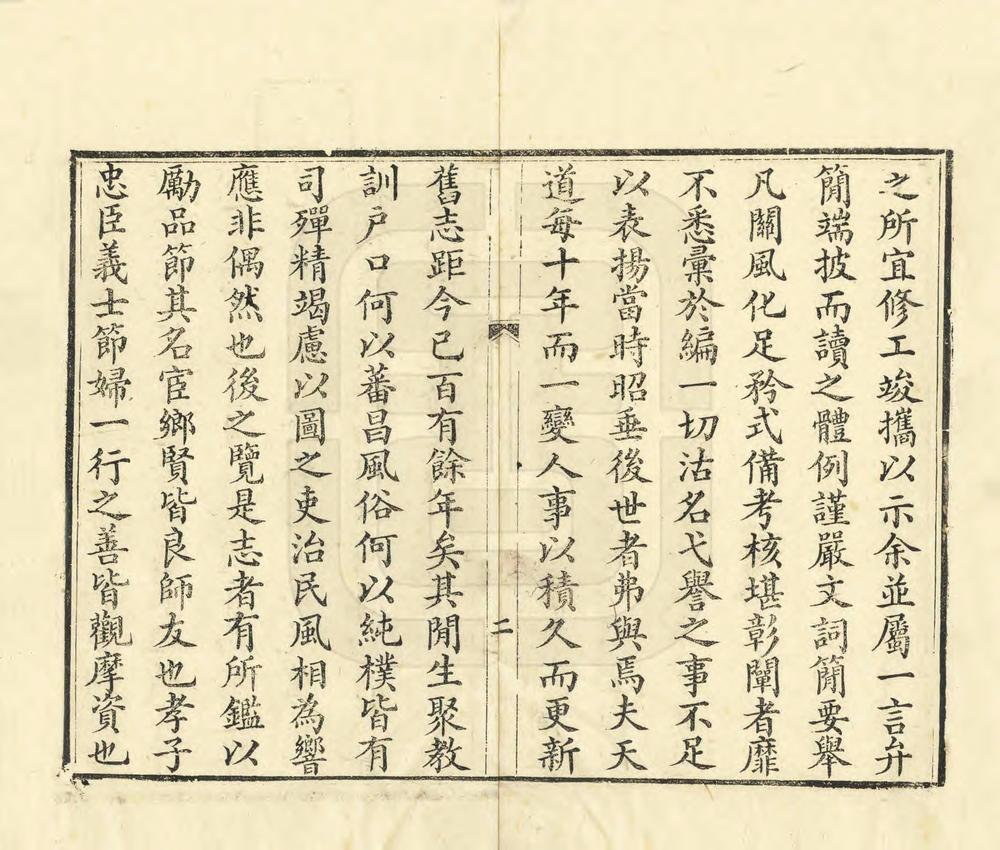 之所宜修工竣攜以示余並屬一言弁
簡端披而讀之體例謹嚴文詞簡要舉
凡關風化足矜式備考核堪彰闡者靡
不悉彙於編一切沽名弋譽之事不足
以表揚當時昭垂後世者弗與焉夫天
道每十年而一變人事以積久而更新
二
舊志距今已百有餘年矣其閒生聚教
訓戶口何以蕃昌風俗何以純樸皆有
司殫精竭慮以圖之吏治民風相為響
應非偶然也後之覽是志者有所鑑以
勵品節其名宦鄉賢皆良師友也孝子
忠臣義士節婦一行之善皆觀摩資也